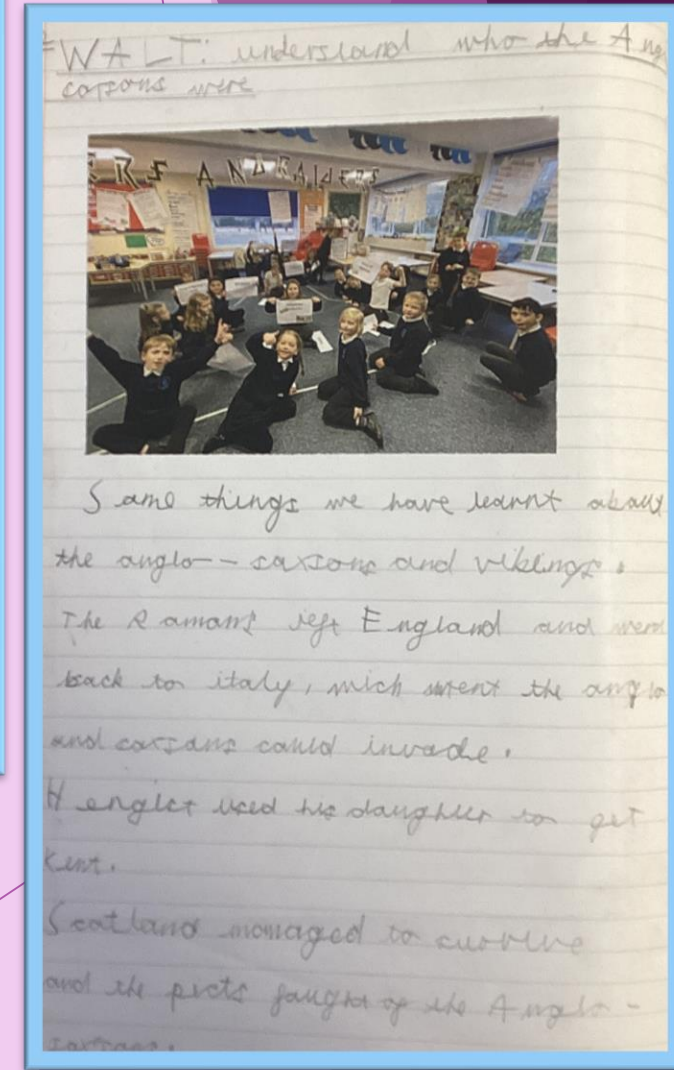 WALT: understand who the Ang
saxsons were
ERS AND RAIDERS
Some things we have learnt about
the anglo-saxsons and vikings.
The Romans left England and went
back to italy, mich ment the anglo
and saxsons could invade.
Hengist used his daughter to get
Kent.
Scotland managed to survive
and the picts faught of the Anglo-
saxsons.